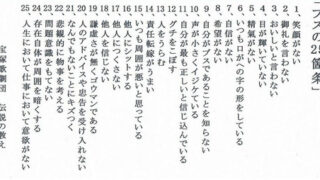 「ブスの25箇条」
1、笑顔がない
2、御礼を言わない
3、おいしいと言わない
4、目が輝いていない
5、精気がない
6、いつも口がへの字の形をしている
7、自信がない
8、希望がない
9、自分がブスであることを知らない
10、声が小さくイジケている
11、自分が最も正しいと信じ込んでいる
12、グチをこぼす
13、人をうらむ
14、責任転嫁がうまい
15、いつも周囲が悪いと思っている
16、他人にシットする
17、他人につくさない
18、他人を信じない
19、謙虚さが無くゴウマンである
20、人のアドバイスや忠告を受け入れない
21、なんでもないことにキズつく
22、悲観的に物事を考える
23、問題意識をもてない
24、存在自体が周囲を暗くする
25、人生においても仕事においても意欲がない
宝塚歌劇団 伝説の教え